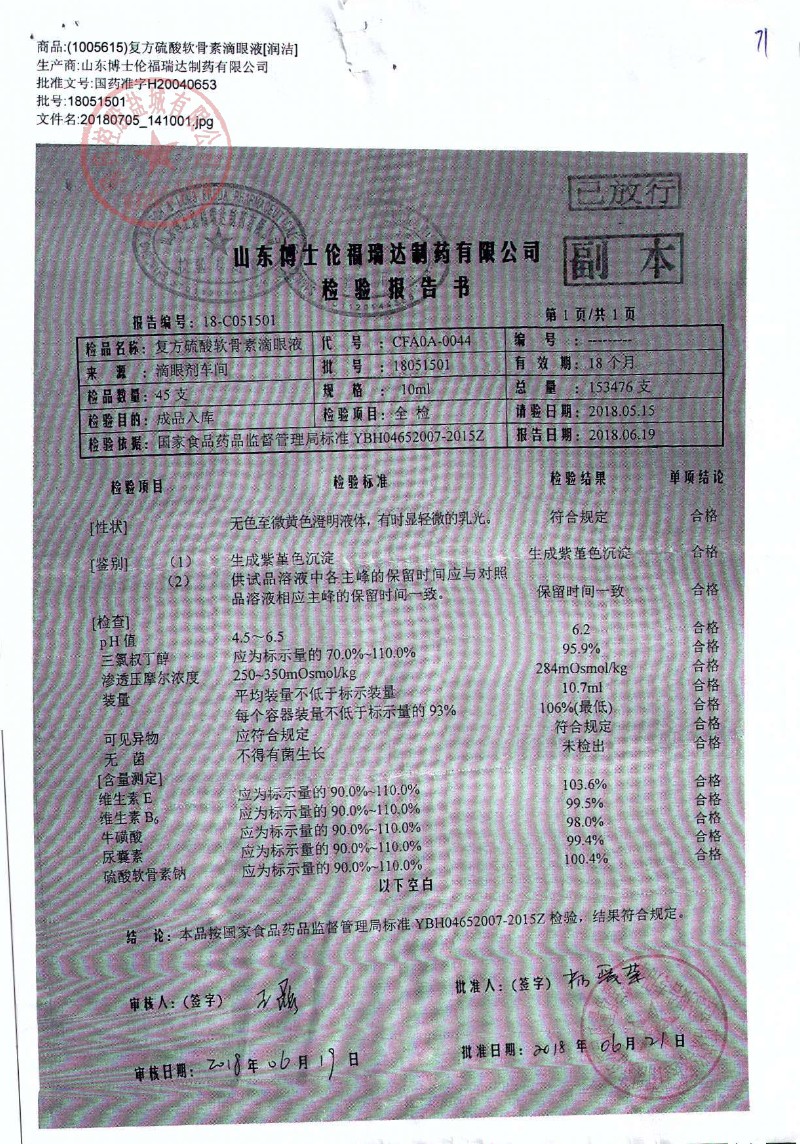 71
商品:(1005615)复方硫酸软骨素滴眼液[润洁]
生产商:山东博士伦福瑞达制药有限公司
批准文号:国药准字H20040653
批号:18051501
文件名:20180705_141001.jpg
已放行
副 本
山东博士伦福瑞达制药有限公司
检验报告书
报告编号：18-C051501 第1页/共1页
检品名称：复方硫酸软骨素滴眼液 代 号 ：CFA0A-0044 编 号 ：---------
来 源 ：滴眼剂车间 批 号 ：18051501 有 效 期：18个月
检品数量：45支 规 格 ：10ml 总 量 ：153476支
检验目的：成品入库 检验项目：全检 请验日期：2018.05.15
检验依据：国家食品药品监督管理局标准 YBH04652007-2015Z 报告日期：2018.06.19
检验项目 检验标准 检验结果 单项结论
[性状] 无色至微黄色澄明液体，有时显轻微的乳光。 符合规定 合格
[鉴别] （1） 生成紫堇色沉淀 生成紫堇色沉淀 合格
（2） 供试品溶液中各主峰的保留时间应与对照
品溶液相应主峰的保留时间一致。 保留时间一致 合格
[检查]
pH值 4.5～6.5 6.2 合格
三氯叔丁醇 应为标示量的 70.0%~110.0% 95.9% 合格
渗透压摩尔浓度 250~350mOsmol/kg 284mOsmol/kg 合格
装量 平均装量不低于标示装量 10.7ml 合格
每个容器装量不低于标示量的 93% 106%(最低) 合格
可见异物 应符合规定 符合规定 合格
无 菌 不得有菌生长 未检出 合格
[含量测定]
维生素 E 应为标示量的 90.0%~110.0% 103.6% 合格
维生素 B₆ 应为标示量的 90.0%~110.0% 99.5% 合格
牛磺酸 应为标示量的 90.0%~110.0% 98.0% 合格
尿囊素 应为标示量的 90.0%~110.0% 99.4% 合格
硫酸软骨素钠 应为标示量的 90.0%~110.0% 100.4% 合格
以下空白
结 论：本品按国家食品药品监督管理局标准 YBH04652007-2015Z 检验，结果符合规定。
审核人：(签字) 批准人：(签字)
审核日期：2018年06月19日 批准日期：2018年06月21日